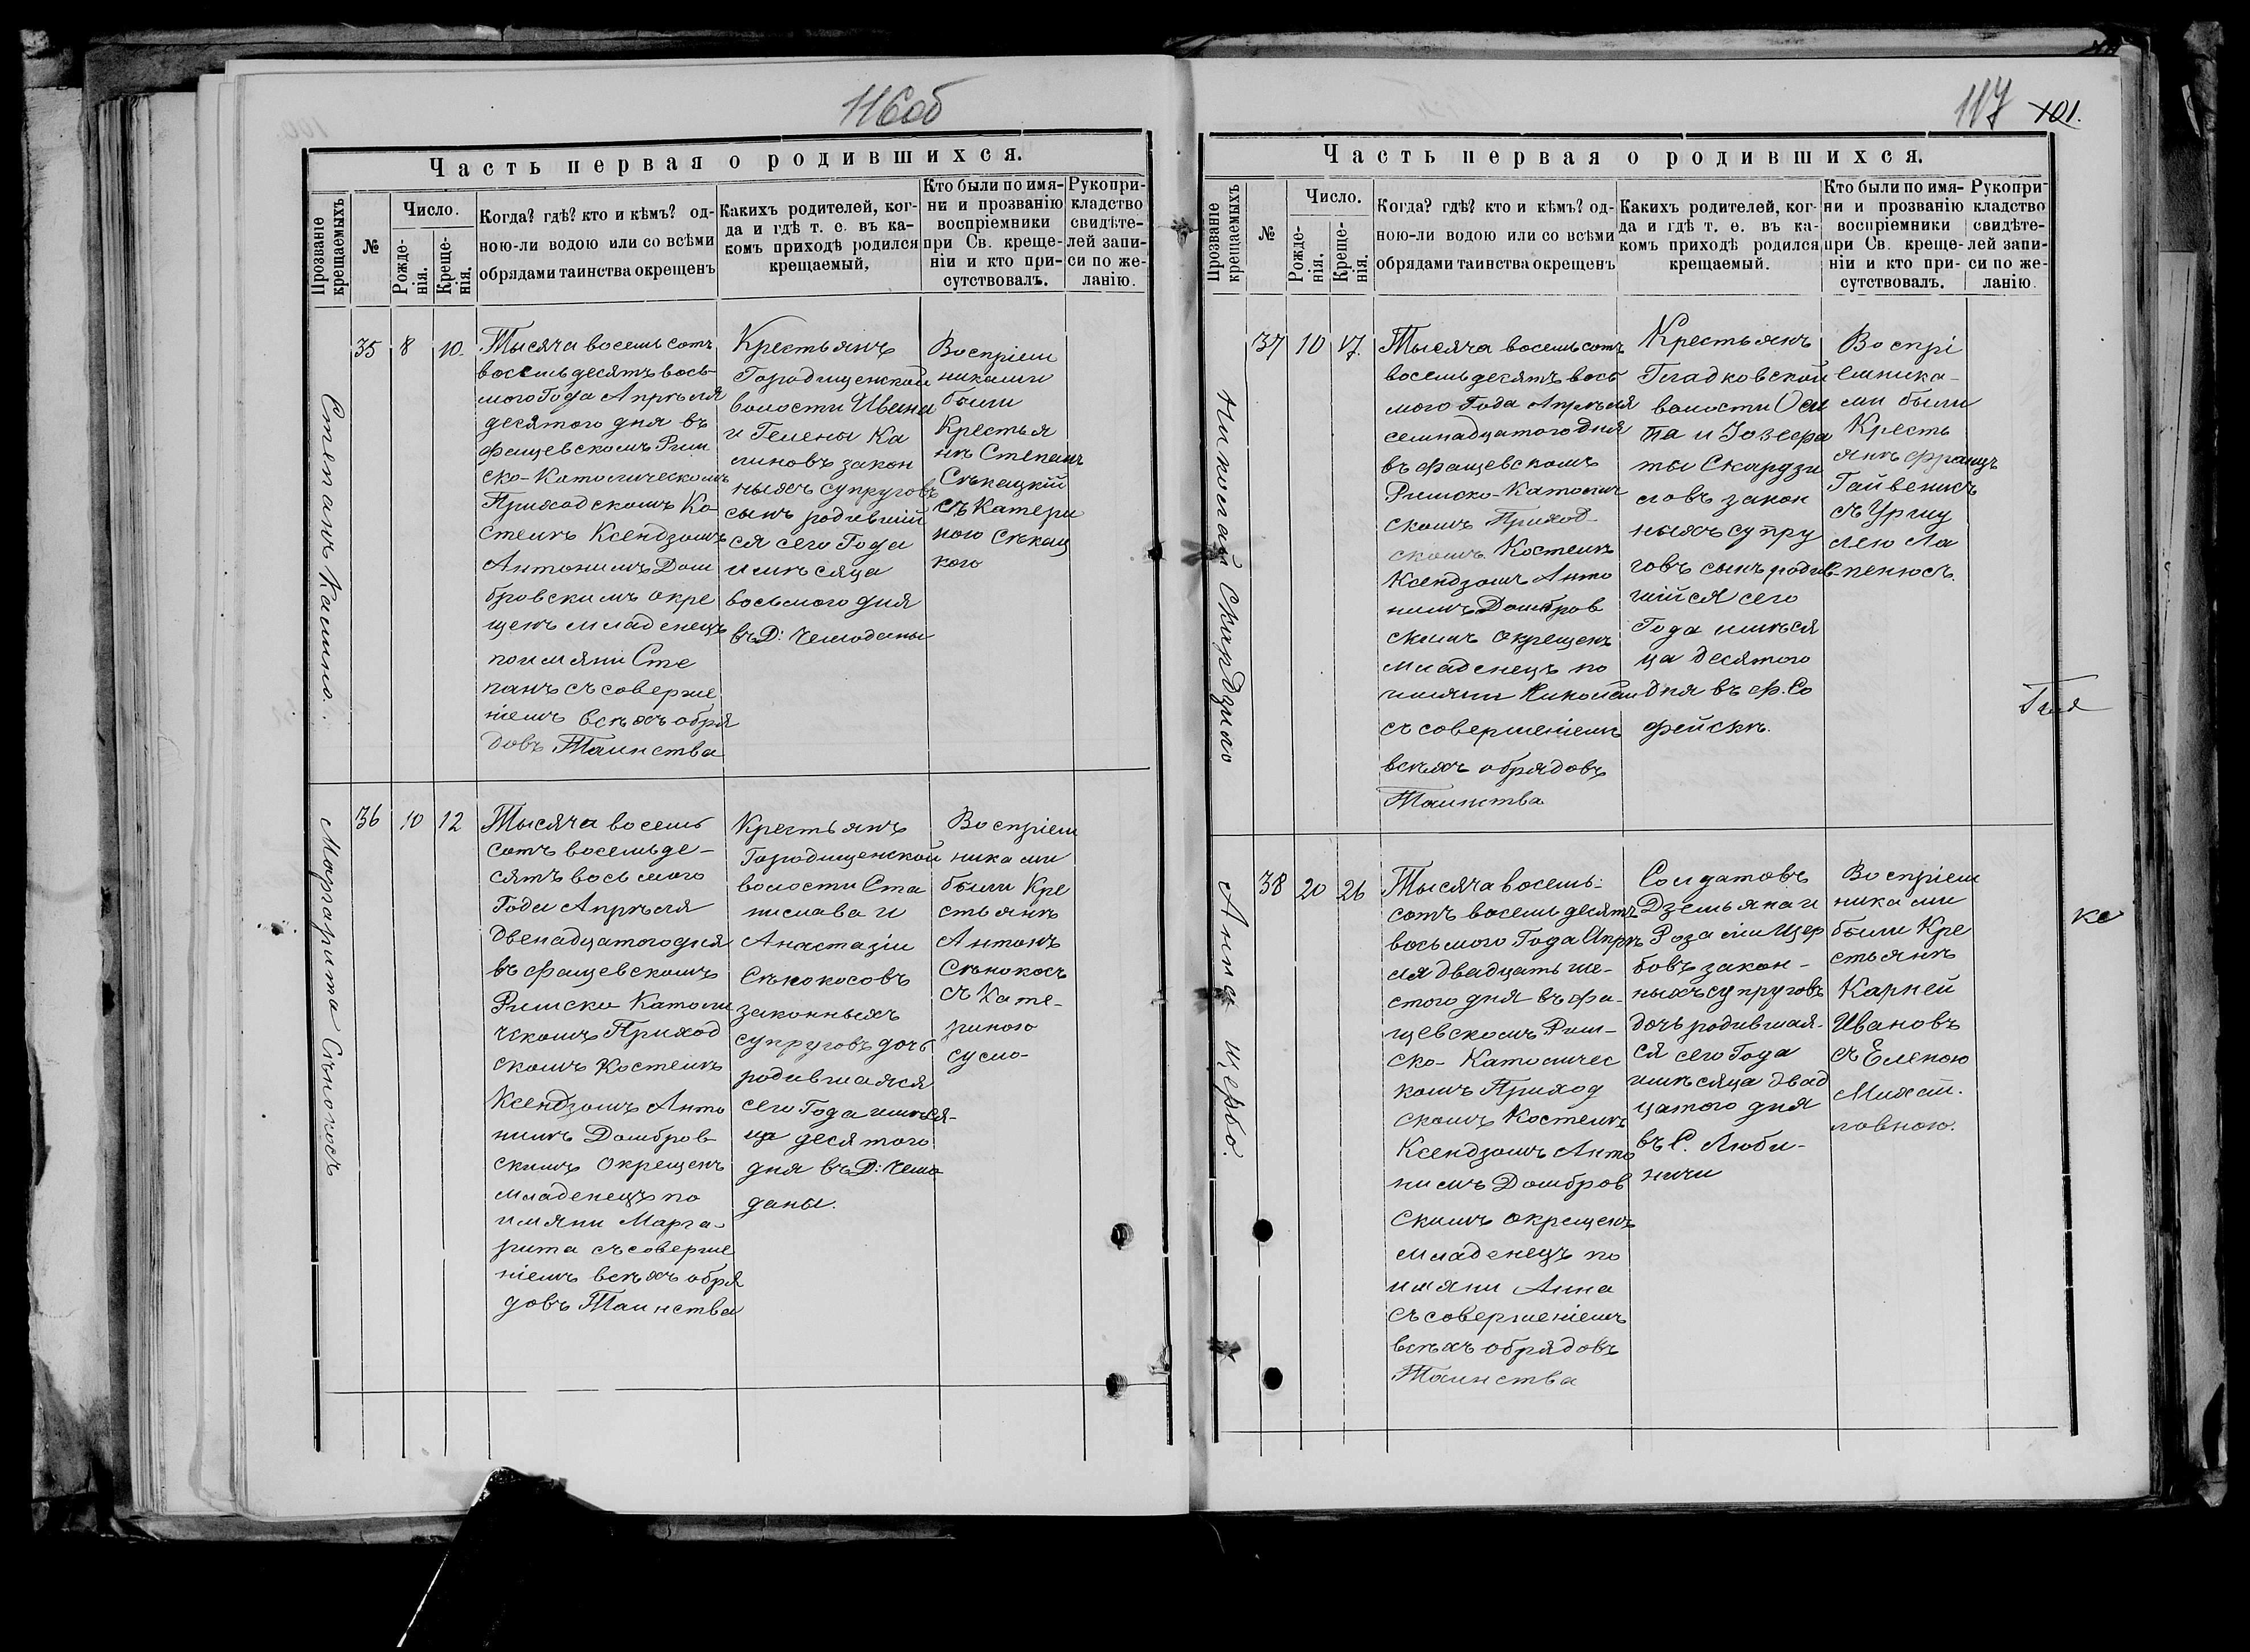 116об
Часть первая о родившихся.
Прозваніе крещаемыхъ
№
Число.
Рожде-
нія.
Креще-
нія.
Когда? гдѣ? кто и кѣмъ? од-
ною-ли водою или со всѣми
обрядами таинства окрещенъ
Какихъ родителей, ког-
да и гдѣ т. е. въ ка-
комъ приходѣ родился
крещаемый,
Кто были по имя-
ни и прозванію
воспріемники
при Св. креще-
ніи и кто при-
сутствовалъ.
Рукопри-
кладство
свидѣте-
лей запи-
си по же-
ланію.
Степанъ Калино.
35
8
10.
Тысяча восемь сотъ
восемьдесятъ вось-
мого Года Апрѣля
десятого дня въ
Фащевскомъ Рим
ско-Католическомъ
Приходскомъ Ко
стелѣ Ксендзомъ
Антонимъ Дом
бровскимъ окре
щенъ младенецъ
по имяни Сте
панъ съ соверше
ніемъ всѣхъ обря
довъ Таинства
Крестьянъ
Городищенской
волости Ивана
и Гелены Ка
линовъ закон
ныхъ супруговъ
сынъ родившій
ся сего Года
и мѣсяца
восьмого дня
въ Д: Чемоданы
Воспріем
никами
были
Крестья
нѣ Степанъ
Сѣкацкій
съ Катери
ною Сѣкац
кого
Маргарита Сѣнокосъ
36
10
12
Тысяча восемь
сотъ восемьде-
сятъ восьмого
Года Апрѣля
Двенадцатого дня
въ Фащевскомъ
Римско Католи
чкомъ Приход
скомъ Костелѣ
Ксендзомъ Анто
нимъ Домбров
скимъ Окрещенъ
младенецъ по
имяни Марга-
рита съ соверше
ніемъ всѣхъ обря
довъ Таинства
Крестьянъ
Городищенской
волости Ста
нислава и
Анастазіи
Сѣнокосовъ
законныхъ
супруговъ дочь
родившаяся
сего Года и мѣся-
ца десятого
дня въ Д: Чемо
даны.
Воспріем
никами
были Кре
стьянѣ
Антонъ
Сѣнокосъ
съ Кате-
риною
сусло-
117 101.
Часть первая о родившихся.
Прозваніе крещаемыхъ
№
Число.
Рожде-
нія.
Креще-
нія.
Когда? гдѣ? кто и кѣмъ? од-
ною-ли водою или со всѣми
обрядами таинства окрещенъ
Какихъ родителей, ког-
да и гдѣ т. е. въ ка-
комъ приходѣ родился
крещаемый.
Кто были по имя-
ни и прозванію
воспріемники
при Св. креще-
ніи и кто при-
сутствовалъ.
Рукопри-
кладство
свидѣте-
лей запи-
си по же-
ланію.
Николай Скардзило
37
10
17.
Тысяча восемь сотъ
восемьдесятъ вось
мого Года Апрѣля
семнадцатого дня
въ Фащевскомъ
Римско-Католич
скомъ Приход-
скомъ Костелѣ
Ксендзомъ Анто
нимъ Домбров
скимъ Окрещенъ
младенецъ по
имяни Николай
съ совершеніемъ
всѣхъ обрядовъ
Таинства
Крестьянъ
Гладковской
волости Оси
па и Іозефа
ты Скардзи
ловъ закон
ныхъ супру
говъ сынъ родив-
шійся сего
Года и мѣся
ца десятого
дня въ Ф. Со
фейскѣ.
Воспрі
емника-
ми были
Кресть
янѣ Францъ
Гайвенисъ
съ Уршу
лею Ла
пенюсъ.
Анна Щербо.
38
20
26
Тысяча восемь-
сотъ восемь десятъ
восьмого Года Апрѣ
ля двадцать ше-
стого дня въ Фа-
щевскомъ Рим-
ско- Католичес
комъ Приход
скомъ Костелѣ
Ксендзомъ Анто
нимъ Домбров
скимъ окрещенъ
младенецъ по
имяни Анна
съ совершеніемъ
всѣхъ обрядовъ
Таинства
Солдатовъ
Дземьяна и
Розаліи Щер
бовъ закон-
ныхъ супруговъ
дочь родившая-
ся сего Года
и мѣсяца двад
цатого дня
въ С. Люби-
ничи
Воспріем
никами
были Кре
стьянѣ
Карней
Ивановъ
съ Еленою
Михай.
ловною.
ке